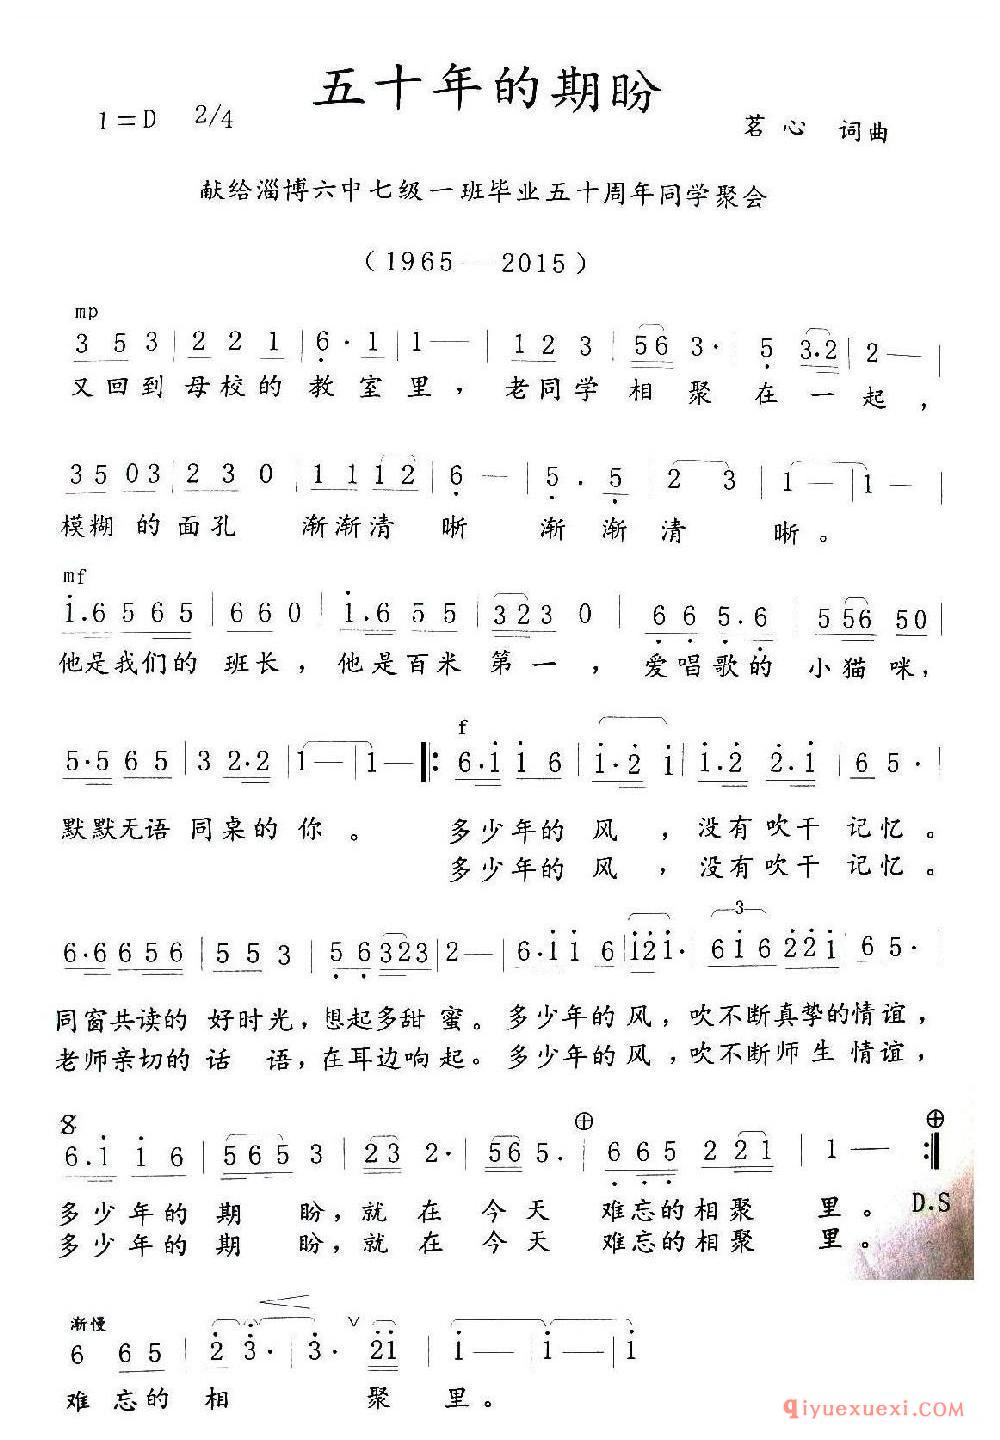 五十年的期盼
1=D 2/4
茗心 词曲
献给淄博六中七级一班毕业五十周年同学聚会
(1965 2015)
mp
3 5 3 | 2 2 1 | 6 · 1 | 1 — | 1 2 3 | 56 3 · 5 3.2 | 2 — |
又回到 母校的 教室里，老同学 相聚 在一起，
35 03 | 2 3 0 | 1 1 12 | 6 — | 5 . 5 | 2 3 | 1 — | 1 — |
模糊 的面孔 渐渐清 晰 渐渐清 晰。
mf
1.6 5 65 | 66 0 | 1.6 55 | 323 0 | 6 6 5.6 | 556 50 |
他是我们的 班长，他是百米 第一，爱唱歌的 小猫 咪，
5·5 65 | 3 2·2 | 1 — | 1 — 6·1 16 | 1·2 1 | 1.2 2.1 | 65 ·
f
默默无语 同桌的你。 多少年的 风，没有吹干 记忆。
多少年的 风，没有吹干 记忆。
6·6 656 | 55 3 | 56 323 | 2 — | 6·1 1 6 | 121· 616 221 65·
3
同窗共读的 好时光，想起多甜 蜜。多少年的风，吹不断真挚的情谊，
老师亲切的 话 语，在耳边响起。多少年的风，吹不断师生情谊，
8
6.1 1 6 | 565 3 | 23 2· | 56 5. 665 2 21 | 1 — :
多少年的 期 盼，就在 今天 难忘的相聚 里。
D.S
多少年的 期 盼，就在 今天 难忘的相聚 里。
渐慢
6 65 | 2 3 · | 3 · 21 | 1 — | 1 — | 1
难忘的相 聚里。
qiyuexuexi.com